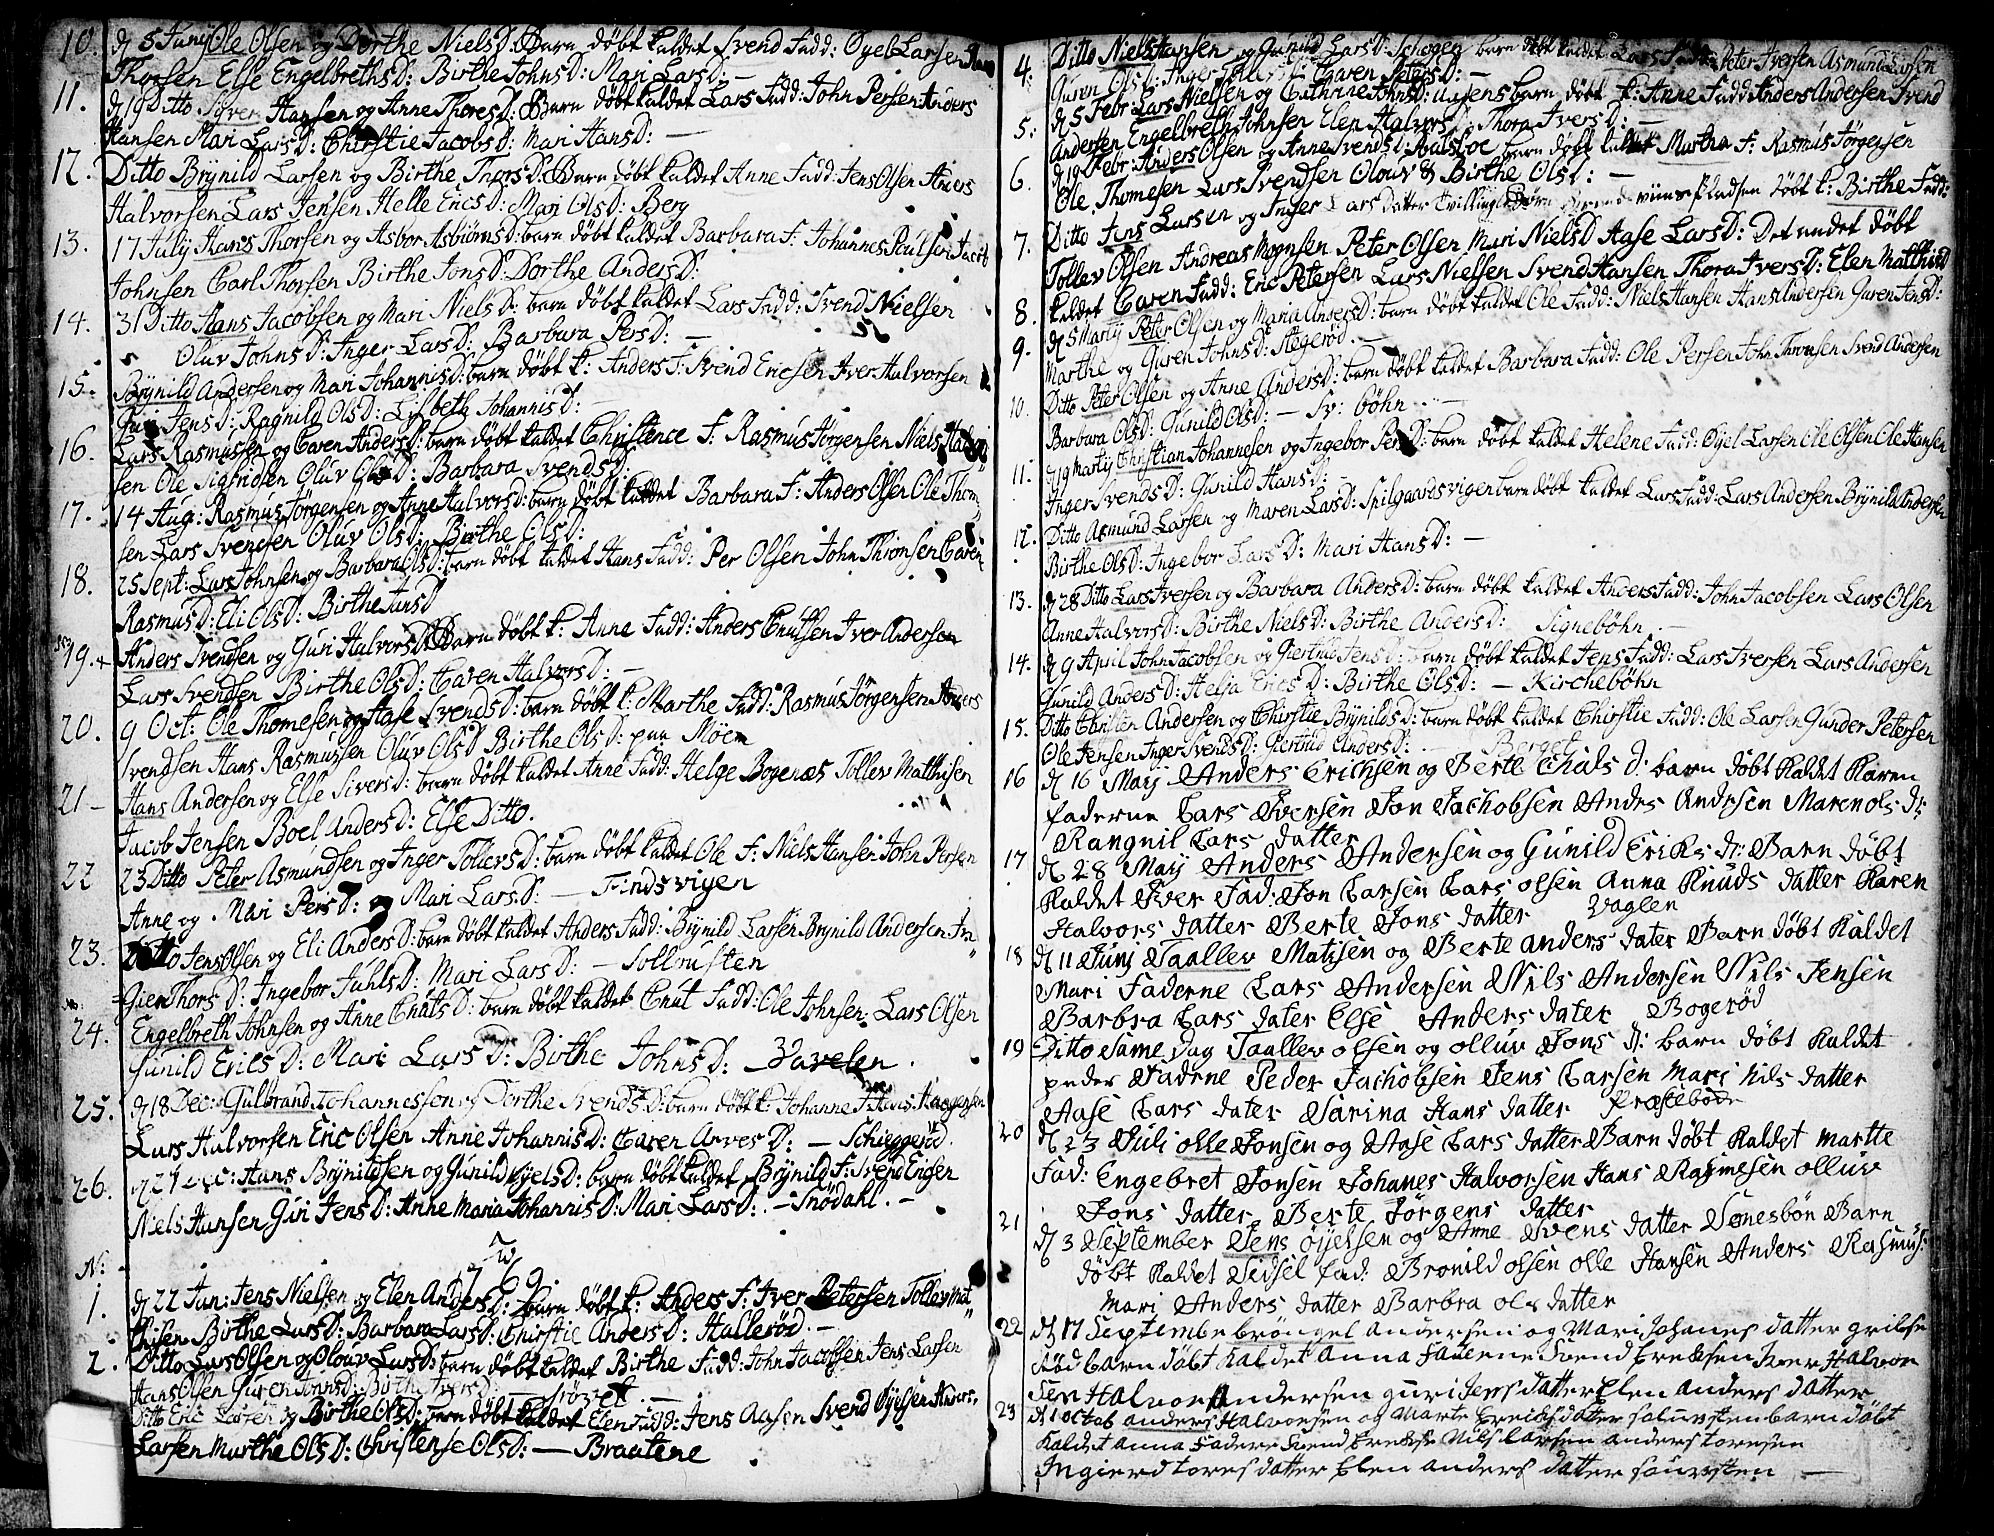 10. d 5 Junij Ole Olsen og Dorthe NielsD: Barn döbt kaldet Svend Fadd: Öyel Larsen
Thorsen Else EngelbrethsD: Birthe JohnsD: Mari LarsD: —
11. d 19 Ditto Syver Hansen og Anne ThoresD: Barn döbt kaldet Lars Fadd: John Persen Anders
Hansen Mari LarsD: Chirstie JacobsD: Mari HansD: —
12. Ditto Brÿnild Larsen og Birthe ThorsD: Barn döbt kaldet Anne Fadd: Jens Olsen Anders
Halvorsen Lars Jensen Helle EricsD: Mari OlsD: Berg
13. 17 July Hans Thorsen og Asbor AsbiörnsD: barn döbt kaldet Barbara F: Johannes Poulsen Jacob
Johnsen Carl Thorsen Birthe JonsD: Dorthe AndersD:
14. 31 Ditto Hans Jacobsen og Mari NielsD: barn döbt kaldet Lars Fadd: Svend Nielsen
Oluv JohnsD: Inger LarsD: Barbara PersD: —
15. Brÿnild Andersen og Mari JohannisD: barn döbt k: Anders F: Svend Ericsen Iver Halvorsen
Guri JensD: Ragnild OlsD: Lisbeth JohannisD: —
16. Lars Rasmussen og Caren AndersD: barn döbt kaldet Christence F: Rasmus Jörgensen Niels Halvor
sen Ole Sigfridsen Oluv OlsD: Barbara SvendsD:
17. 14 Aug: Rasmus Jörgensen og Anne HalvorsD: barn döbt kaldet Barbara F: Anders Olsen Ole Thom
sen Lars Svendsen Oluv OlsD: Birthe OlsD:
18. 25 Sept: Lars Johnsen og Barbara OlsD: barn döbt kaldet Hans Fadd: Per Olsen John Thronsen Caren
RasmusD: Eli OlsD: Birthe JansD
19. Anders Svendsen og Guri HalvorsD: Barn döbt k: Anne Fadd: Anders Cnutsen Iver Andersen
Lars Svendsen Birthe OlsD: Caren HalvorsD: —
20. 9 Oct: Ole Thomesen og Aase SvendsD: barn döbt k: Marthe Fadd: Rasmus Jörgensen Anders
Svendsen Hans Rasmussen Oluv OlsD Birthe OlsD: paa Möen
21 – Hans Andersen og Else SiversD: barn döbt kaldet Anne Fadd: Helge Bogenæs Tollev Matthisen
Jacob Jensen Boel AndersD: Else Ditto.
22 23 Ditto Peter Asmundsen og Inger TollevsD: barn döbt kaldet Ole F: Niels Hansen John Persen
Anne og Mari PersD: og Mari LarsD: — Findsvigen
23. Ditto Jens Olsen og Eli AndersD: barn döbt kaldet Anders Fadd: Brÿnild Larsen Brÿnild Andersen
ThorsD: Ingebor JuhlsD: Mari LarsD: — Sollrusten
24. Engelbreth Johnsen og Anne CnutsD: barn döbt kaldet Cnut Fadd: Ole Johnsen Lars Olsen
Gunild EricsD: Mari LarsD: Birthe JohnsD: Vavelen.
25. d 18 Dec: Gulbrand Johannessen og Dorthe SvendsD: barn döbt k: Johanne F: Hans Haagensen
Lars Halvorsen Eric Olsen Anne JohannisD: Caren ArvesD: — Schieggeröd.
26. d 27 Dec: Hans Brÿnildsen og Gunild ÖyelsD: barn döbt kaldet Brÿnild F: Svend Ericsen
Niels Hansen Guri JensD: Anne Maria JohannisD: Mari LarsD: — Snödahl. —
N:
1769.
1. d 22 Jan: Jens Nielsen og Elen AndersD: barn döbt k: Anders F: Iver Petersen Tollev Mat
thisen Birthe LarsD: Barbara LarsD: Chirstie AndersD: Halleröd: —
2. Ditto Lars Olsen og Olouv LarsD: barn döbt kaldet Birthe Fadd: John Jacobsen Jens Larsen
Hans Olsen Guren TonnsD: Birthe IversD:
Ditto Eric Larsen og Birthe OlsD: barn döbt kaldet Elen Fadd: Jens Aasen Svend Öyelsen Anders
Larsen Marthe OlsD: Christense OlsD: — Braatene
4. Ditto Niels Hansen og Gunild LarsD: Schogen barn döbt kaldet Lars Fadd: Peter Iversen Asmund Larsen
Guren OlsD: Inger Caren PetersD: —
5. d 5 Febr: Lars Nielsen og Cathrine JohnsD: barn döbt k: Anne Fadd: Anders Andersen Svend
Andersen Engelbreth Johnsen Elen HalvorsD: Thora IversD: —
6. d 19 Febr: Anders Olsen og Anne SvendsD: barn döbt kaldet Martha F: Rasmus Jörgensen
Ole Thomesen Lars Svendsen Olouv & Birthe OlsD: —
7. Ditto Jens Larsen og Inger Lars datter Tvillinge Börn pladsen döbt k: Birthe Fadd:
Tollev Olsen Andreas Mognsen Peter Olsen Mari NielsD Aase LarsD: Det andet döbt
8. kaldet Caren Fadd: Eric Petersen Lars Nielsen Svend Hansen Thora IversD: Elen Matthisd
9. d 5 Martij Peter Olsen og Maria AndersD: barn döbt kaldet Ole Fadd: Niels Hansen Hans Andersen Guren JensD:
Marthe og Guren JohnsD: Stegeröd. —
10. Ditto Peter Olsen og Anne AndersD: barn döbt kaldet Barbara Fadd: Ole Persen John Thronsen Svend Andersen
Barbara OlsD: Gunild OlsD: — Sv: böhn. —
11. d 19 Martij Christian Johannesen og Ingebor PersD: barn döbt kaldet Helene Fadd: Öyel Larsen Ole Olsen Ole Hansen
Inger SvendsD: Gunild HansD: —
12. Ditto Asmund Larsen og Maren LarsD: Spilgaardsvigen barn döbt kaldet Lars Fadd: Lars Andersen Brÿnild Andersen
Birthe OlsD: Ingebor LarsD: Mari HansD: —
13. d 28 Ditto Lars Iversen og Barbara AndersD: barn döbt kaldet Anders Fadd: John Jacobsen Lars Olsen
Anne HalvorsD: Birthe NielsD: Birthe AndersD: Signeböhn. —
14. d 9 April John Jacobsen og Giertrud JensD: barn döbt kaldet Jens Fadd: Lars Iversen Lars Andersen
Gunild AndersD: Helja EricsD: Birthe OlsD: — Kircheböhn
15. Ditto Christen Andersen og Chirstie BrÿnildsD: barn döbt kaldet Chirstie Fadd: Ole Larsen Gunder Petersen
Ole Jensen Inger SvendsD: Giertrud AndersD: — Berget
16 d 16 Maij Anders Erichsen og Berte Chals D: barn döbt kaldet Karen
faderne Lars Iversen Jon Jachobsen Andrs Andrsen Maren ols dr
Rangnil Lars datter
17 d 28 Maij Anders Andersen og Gunild Eriks dr Barn döbt
Kaldet Iver Fad: Jon Larsen Lars olsen Anna Knuds datter Karen
Halvors datter Berte Jons datter Vaglen
18 d 11 Junij Taallev Matisen og Berte anders dater Barn döbt Kaldet
Mari Faderne Lars Andersen Nils Andersen Nils Jensen
Barbra Lars dater Else Anders dater Bogeröd
19 Ditto Same dag Taallev olsen og olluv Jons dr barn döbt kaldet
peder Faderne Peder Jachobsen Jens Larsen Mari Nils datter
Aase Lars dater Sarina Hans datter Præsteböde
20 d 23 Juli olle Jonsen og Aase Lars datter Barn döbt kaldet martte
Fad: Engebret Jonsen Johanes Halvorsen Hans Rasmesen olluv
Jons datter Berte Jörgens datter
21 d 3 September Jens öyelsen og Anne Svens datter Semesbön Barn
döbt kaldet Sidsel fad: Bronild olsen olle Hansen Anders Rasmus:
Mari Anders datter Barbra ols datter
22 d 17 Septembe bröngel andersen og Mari Johanes datter gribse
Röd barn döbt kaldet anna faderne Svend Ereksen Iver Halvor
sen Halvor Andersen guri Jens datter Elen anders datter
23 d 1 octob anders Halvorsen og Marte Ereiks datter solusten barn döbt
kaldet anna Fadere Svend Erekse Nils larsen anders toresen
Ingierd tores datter Elen anders datter soursten —